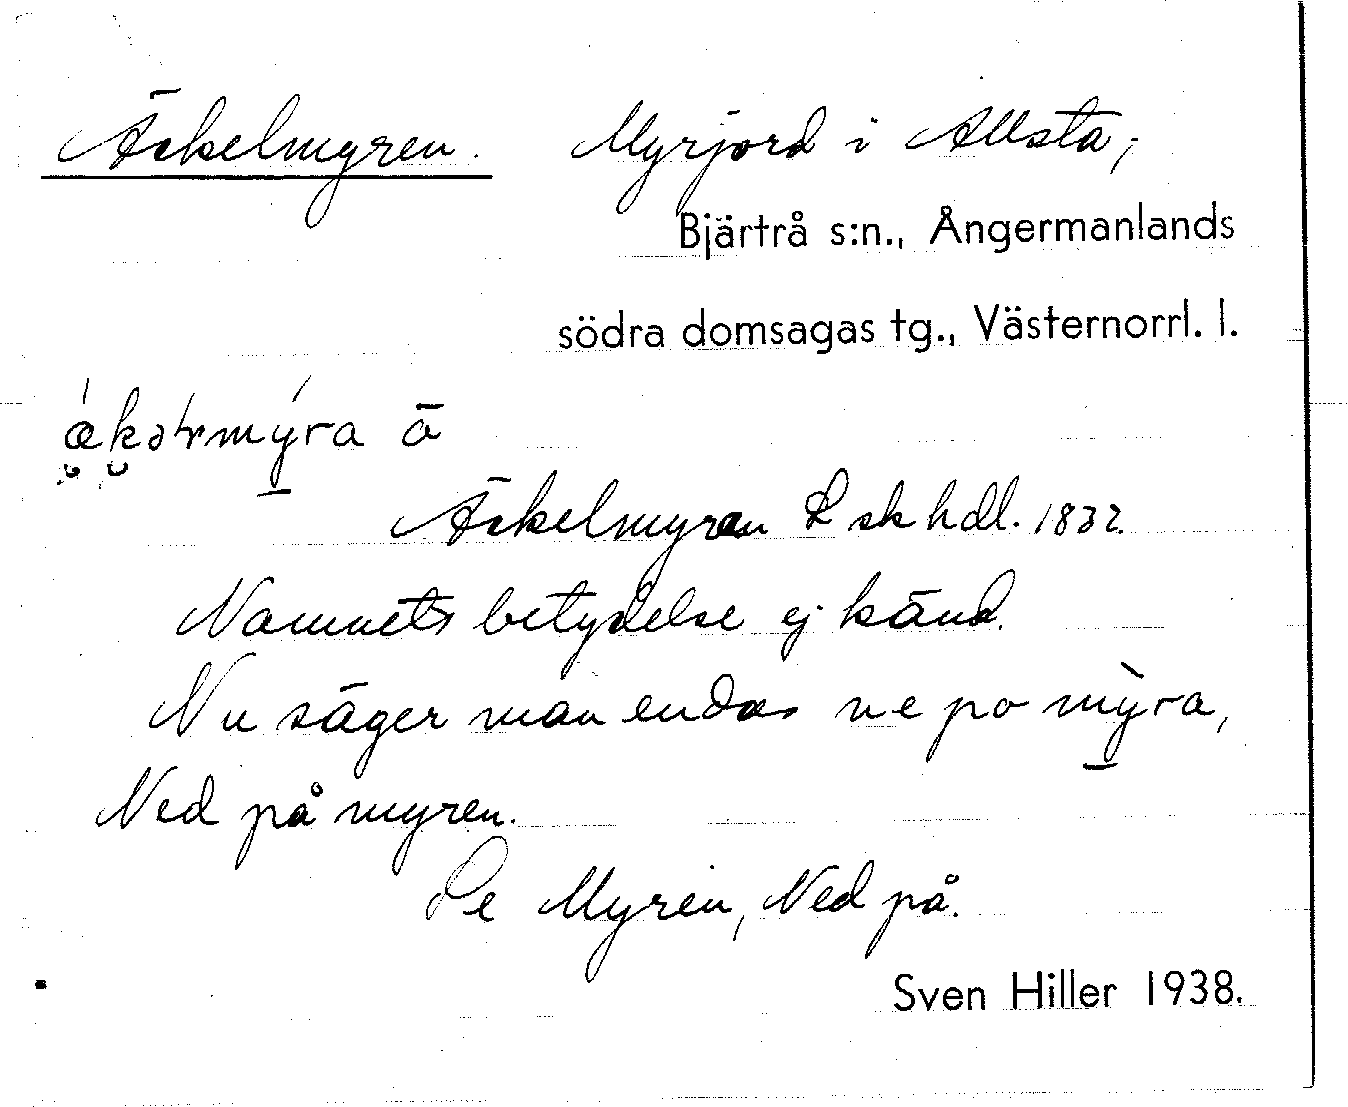 Äckelmyren. Myrjord i Allsta,
Bjärtrå s:n., Ångermanlands
södra domsagas tg., Västernorrl. l.
Äckelmyren L sk hdl. 1832.
Namnets betydelse ej känd.
Nu säger man endas ne po mỳra,
Ned på myren.
Se Myren, Ned på.
Sven Hiller 1938.